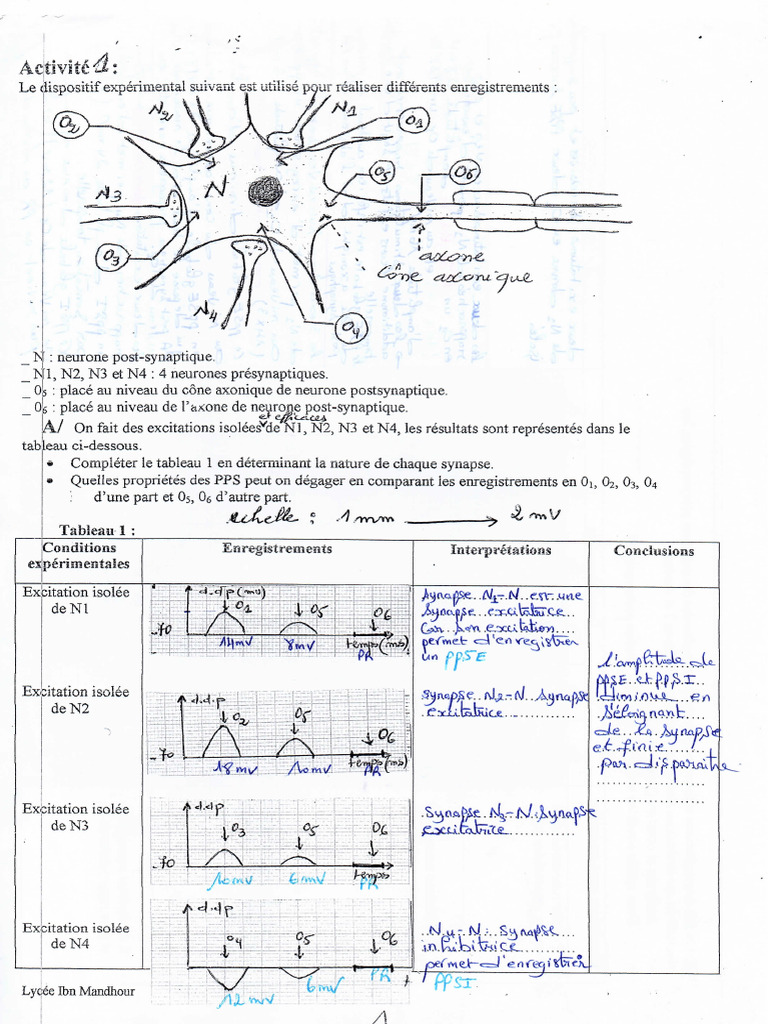 Activité 1 :
Le dispositif expérimental suivant est utilisé pour réaliser différents enregistrements :
N2
N1
O2
O1
N
O5
O6
N3
O3
axone
Cône axonique
N4
O4
_ N : neurone post-synaptique.
_ N1, N2, N3 et N4 : 4 neurones présynaptiques.
_ 0₅ : placé au niveau du cône axonique de neurone postsynaptique.
_ 0₆ : placé au niveau de l'axone de neurone post-synaptique.
et efficaces
A/ On fait des excitations isolées de N1, N2, N3 et N4, les résultats sont représentés dans le
tableau ci-dessous.
• Compléter le tableau 1 en déterminant la nature de chaque synapse.
• Quelles propriétés des PPS peut on dégager en comparant les enregistrements en 0₁, 0₂, 0₃, 0₄
d'une part et 0₅, 0₆ d'autre part.
echelle : 1mm → 2 mV
Tableau 1 :
Conditions expérimentales
Enregistrements
Interprétations
Conclusions
Excitation isolée
de N1
d.dp (mv)
O1
O5
O6
-70
temps(ms)
14mv
8mv
PR
Synapse N1-N est une
Synapse excitatrice
Car son excitation
permet d'enregistrer
un PPSE
Excitation isolée
de N2
d.d.p
O2
O5
O6
-70
temps(ms)
18mv
10mv
PR
Synapse N2-N Synapse
excitatrice
Excitation isolée
de N3
d.dp
O3
O5
O6
-70
temps
10mv
6mV
PR
Synapse N3-N: Synapse
excitatrice
Excitation isolée
de N4
d.dp
O4
O5
O6
12mv
6mV
PR
N4-N: Synapse
inhibitrice
permet d'enregistrer
PPSI
l'amplitude de
PPSE et PPSI
diminue en
s'éloignant
de la synapse
et finir
par disparaitre
Lycée Ibn Mandhour
1